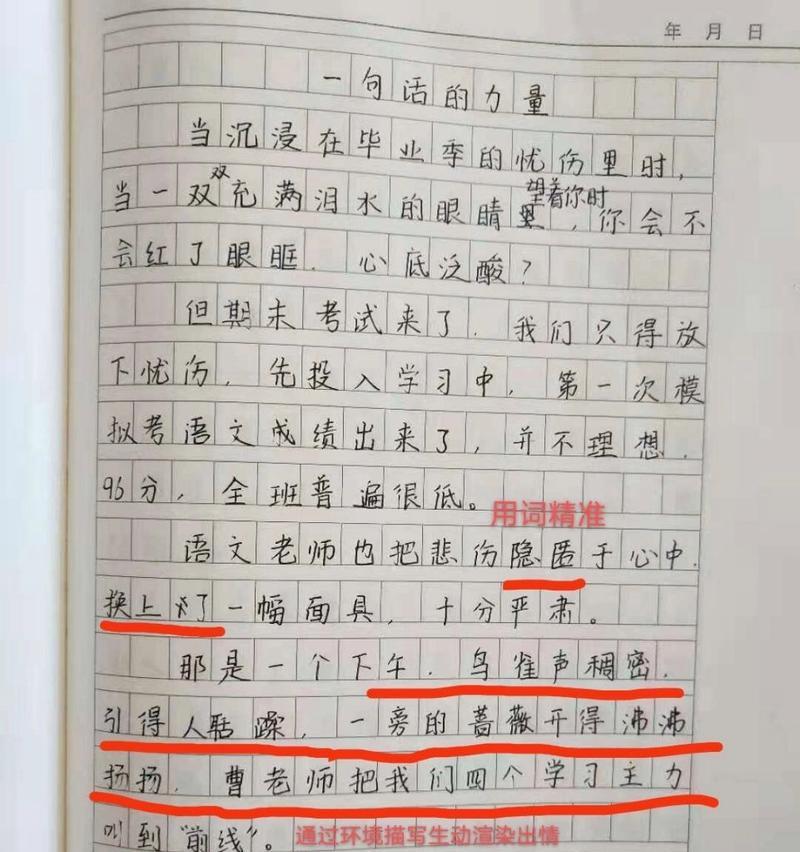 年 月 日
一句话的力量
当沉浸在毕业季的忧伤里时，
当一双双充满泪水的眼睛望着你时，你会不
会红了眼眶，心底泛酸？
但期末考试来了，我们只得放
下忧伤，先投入学习中，第一次模
拟考语文成绩出来了，并不理想，
96分，全班普遍很低。
用词精准
语文老师也把悲伤隐匿于心中，
换上了一幅面具，十分严肃。
那是一个下午，鸟雀声稠密，
引得人聒躁，一旁的蔷薇开得沸沸
扬扬，曹老师把我们四个学习主力
叫到“前线”。
通过环境描写生动渲染出情